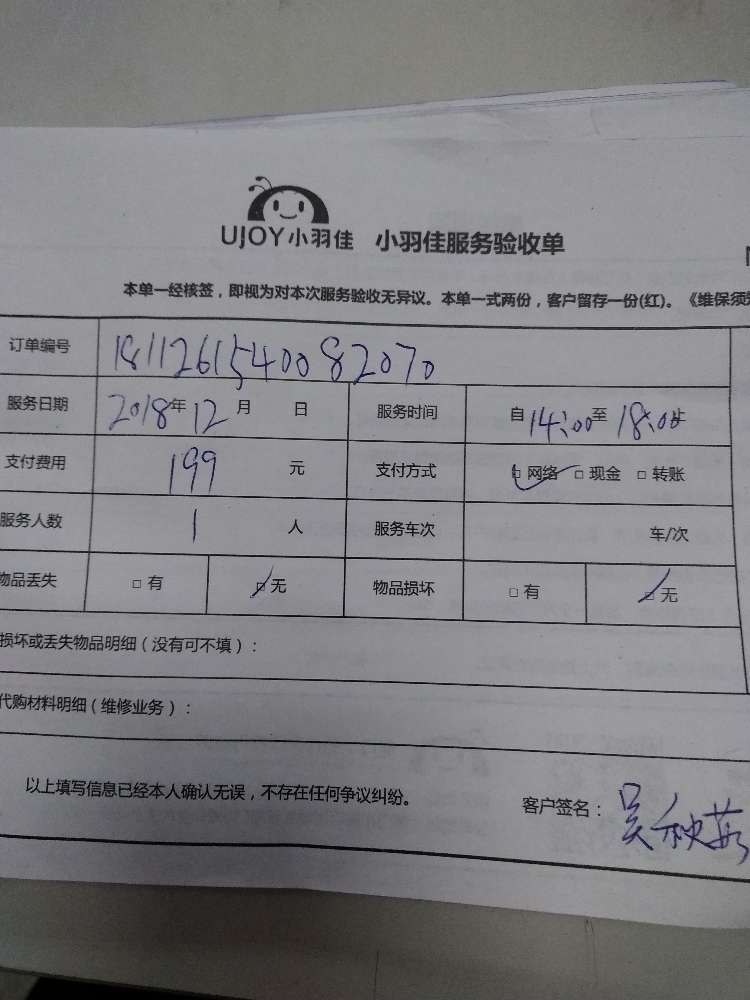 UJOY小羽佳 小羽佳服务验收单
本单一经核签，即视为对本次服务验收无异议。本单一式两份，客户留存一份(红)。《维保须知
订单编号 181126154008 2070
服务日期 2018年12月 日 服务时间 自14:00至18:00止
支付费用 199 元 支付方式 □网络 □现金 □转账
服务人数 1 人 服务车次 车/次
物品丢失 □有 □无 物品损坏 □有 □无
损坏或丢失物品明细（没有可不填）：
代购材料明细（维修业务）：
以上填写信息已经本人确认无误，不存在任何争议纠纷。 客户签名：吴秋